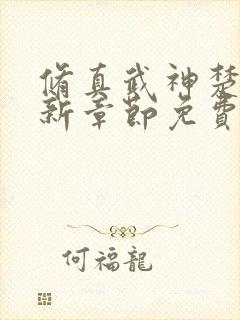 脩真武神楚
新章節免費
何福龍